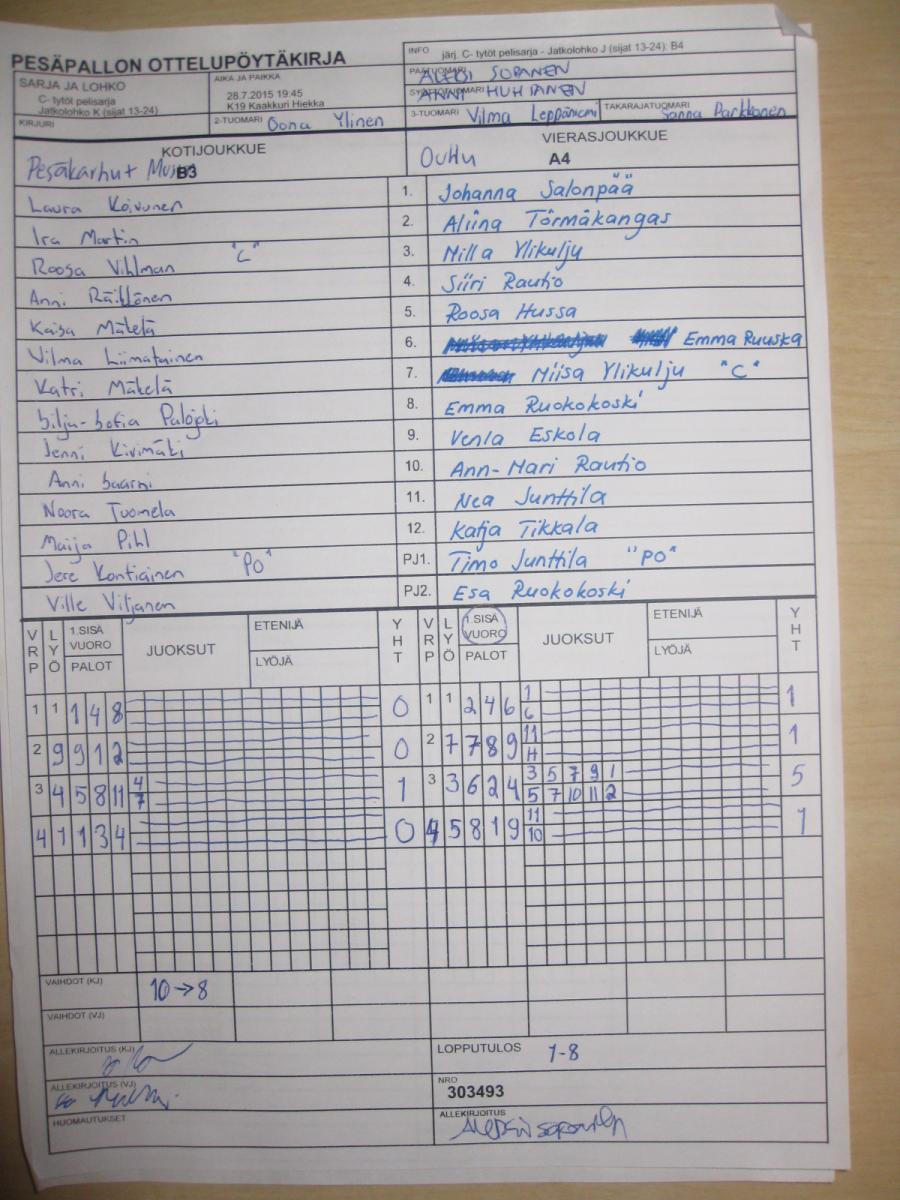 PESÄPALLON OTTELUPÖYTÄKIRJA
INFO järj. C- tytöt pelisarja - Jatkolohko J (sijat 13-24): B4
SARJA JA LOHKO
C- tytöt pelisarja
Jatkolohko K (sijat 13-24)
AIKA JA PAIKKA
28.7.2015 19:45
K19 Kaakkuri Hiekka
PÄÄTUOMARI ALEKSI SOPANEN
SYÖTTÖTUOMARI ANNI HUHTANEN
KIRJURI
2-TUOMARI Oona Ylinen
3-TUOMARI Vilma Leppäniemi
TAKARAJATUOMARI Sanna Parkkonen
KOTIJOUKKUE
Pesäkarhut B3
VIERASJOUKKUE
OuHu A4
Laura Koivunen 1. Johanna Salonpää
Ira Martin 2. Aliina Törmäkangas
Roosa Vihlman "C" 3. Milla Ylikulju
Anni Räittönen 4. Siiri Rautio
Kaisa Mäkelä 5. Roosa Hussa
Vilma Liimatainen 6. Emma Ruuska
Katri Mäkelä 7. Miisa Ylikulju "C"
Silja-Sofia Palojoki 8. Emma Ruokokoski
Jenni Kivimäki 9. Venla Eskola
Anni Saarni 10. Ann-Mari Rautio
Noora Tuomela 11. Nea Junttila
Maija Pihl 12. Katja Tikkala
Jere Kontiainen "PO" PJ1. Timo Junttila "PO"
Ville Viljanen PJ2. Esa Ruokokoski
VRP LYÖ 1.SISÄ VUORO PALOT JUOKSUT ETENIJÄ LYÖJÄ YHT VRP LYÖ 1.SISÄ VUORO PALOT JUOKSUT ETENIJÄ LYÖJÄ YHT
1 1 1 4 8 0 1 1 2 4 6 1 6 1
2 9 9 1 2 0 2 7 7 8 9 11 H 1
3 4 5 8 11 4 7 1 3 3 6 2 4 3 5 7 9 1 5 7 10 11 2 5
4 1 1 3 4 0 4 5 8 1 9 11 10 1
VAIHDOT (KJ) 10→8
VAIHDOT (VJ)
ALLEKIRJOITUS (KJ)
LOPPUTULOS 1-8
ALLEKIRJOITUS (VJ)
NRO
303493
HUOMAUTUKSET
ALLEKIRJOITUS